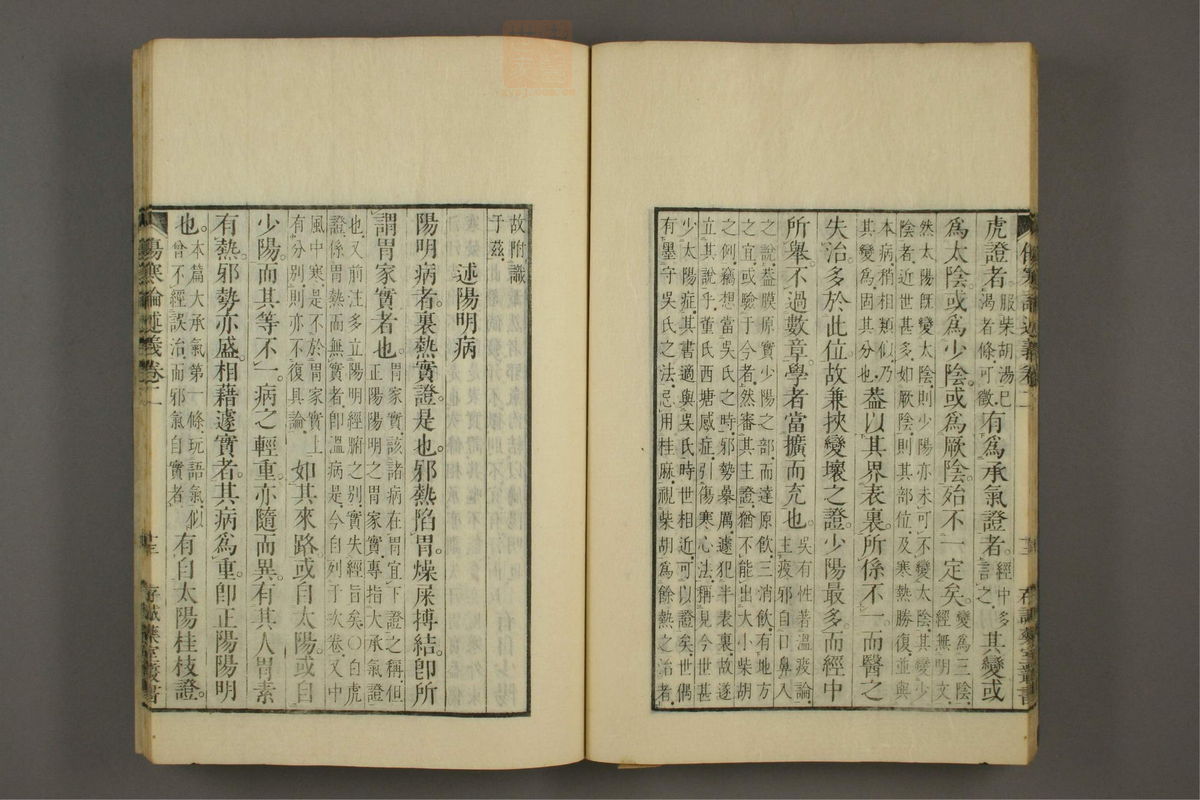 虎證者。服柴胡湯已渴者條可徵有爲承氣證者。經中多言之其變或
爲太陰。或爲少陰。或爲厥陰。殆不一定矣。變爲三陰經無明文
然太陽旣變太陰則少陽亦未可不變太陰其變少
陰者近世甚多如厥陰則其部位及寒熱勝復並與
本病稍相類似乃
其變爲固其分也蓋以其界表裏。所係不一。而醫之
失治。多於此位。故兼挾變壞之證。少陽最多。而經中
所舉。不過數章。學者當擴而充也。吳有性著溫疫論主疫邪自口鼻入
之說蓋膜原實少陽之部而達原飲三消飲有地方
之宜或驗于今者然審其主證猶不能出大小柴胡
之例竊想當吳氏之時邪勢暴厲遽犯半表裏故遂
立其說乎董氏西塘感症引傷寒心法稱見今世甚
少太陽症其書適與吳氏時世相近可以證矣世偶
有墨守吳氏之法忌用桂麻視柴胡爲餘熱之治者
傷寒論述義卷二
十二
存誠藥室叢書
故附識
于茲
述陽明病
陽明病者。裏熱實證。是也。邪熱陷胃。燥屎搏結。卽所
謂胃家實者也。胃家實該諸病在胃宜下證之稱但正陽陽明之胃家實專指大承氣證
也又前注多立陽明經腑之別實失經旨矣〇白虎
證係胃熱而無實者卽溫病是今自列于次卷又中
風中寒是不於胃家實上
有分別則亦不復具論如其來路。或自太陽。或自
少陽。而其等不一。病之輕重。亦隨而異。有其人胃素
有熱。邪勢亦盛。相藉遽實者。其病爲重。卽正陽陽明
也。本篇大承氣第一條玩語氣似曾不經誤治而邪氣自實者有自太陽桂枝證。
傷寒論述義卷二
十三
存誠藥室叢書